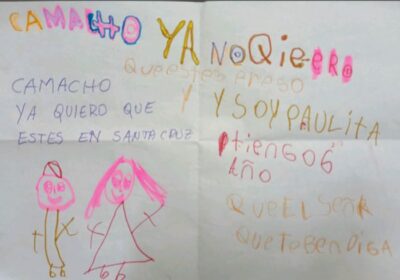 CAMACHO YA NO QUIERO
QUE ESTES PRESO
CAMACHO
YA QUIERO QUE
ESTES EN SANTA CRUZ
Y Y SOY PAULITA
tiENGO 6
AÑO
QUE EL SEÑR
QUE TO BENDIGA